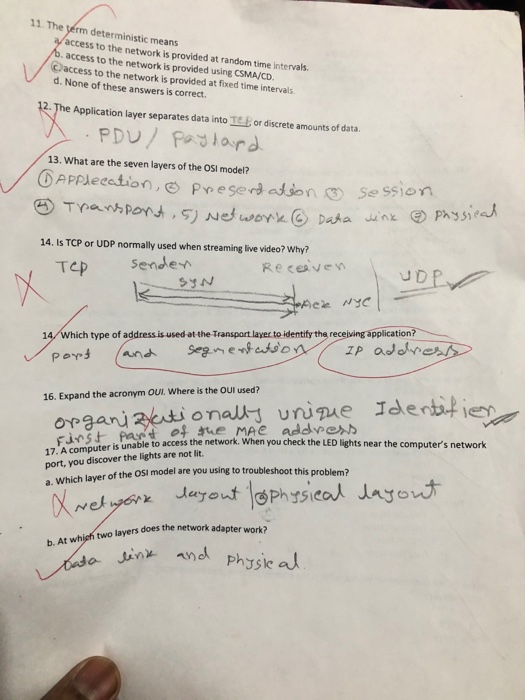 11. The term deterministic means
a. access to the network is provided at random time intervals.
b. access to the network is provided using CSMA/CD.
c. access to the network is provided at fixed time intervals
d. None of these answers is correct.
12. The Application layer separates data into or discrete amounts of data.
PDU / Payload
13. What are the seven layers of the OSI model?
① Application, ② Presentation ③ Session
④ Transport, 5) Network ⑥ Data link ⑦ physical
14. Is TCP or UDP normally used when streaming live video? Why?
TCP Sender Receiver
SYN UDP
ACK
14. Which type of address is used at the Transport layer to identify the receiving application?
port and segmentation IP address
16. Expand the acronym OUI. Where is the OUI used?
organizationally unique Identifier
First part of the MAC address
17. A computer is unable to access the network. When you check the LED lights near the computer's network
port, you discover the lights are not lit.
a. Which layer of the OSI model are you using to troubleshoot this problem?
Network layout physical layout
b. At which two layers does the network adapter work?
Data link and physical